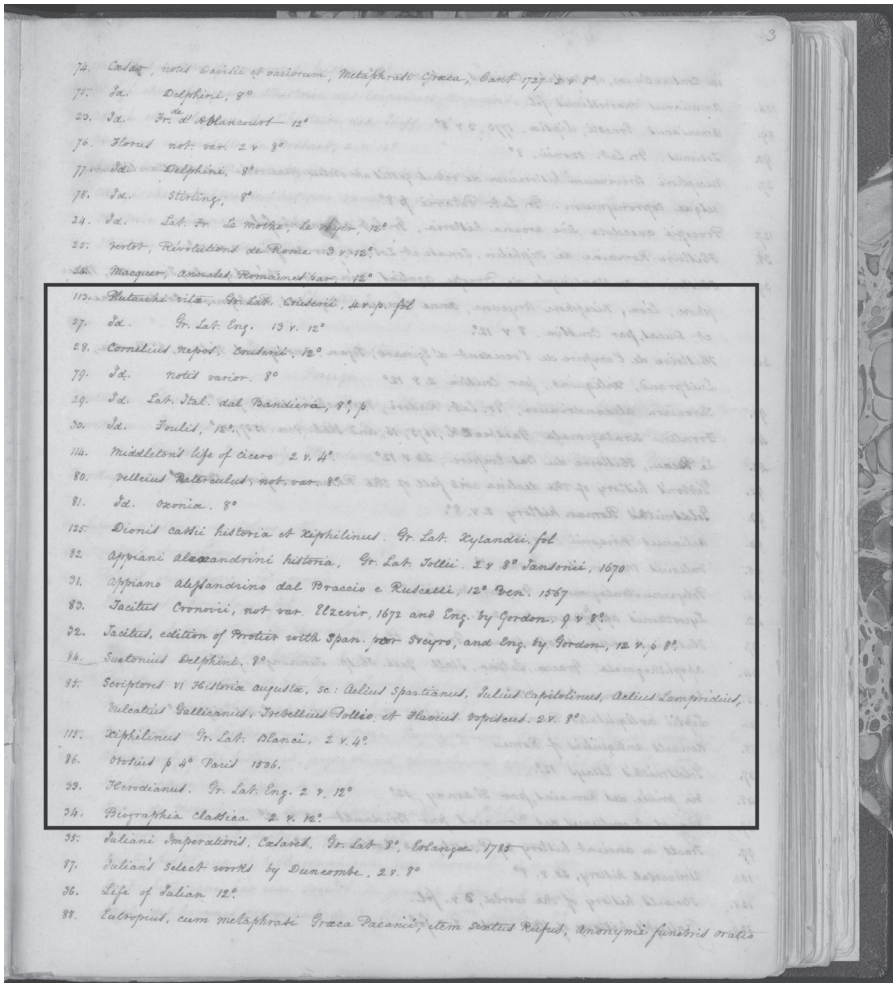 3
74. Caesar, notis Davisii et variorum, Metaphrasi Graeca, Cant 1727 2 v 8º
75. Id. Delphini, 8º
23. Id. Fr. de d'Ablancourt 12º
76. Florus not. var. 2 v 8º
77. Id. Delphini, 8º
78. Id. Stirling, 8º
24. Id. Lat. Fr. Le Mothe, le Vayer, 12º
25. Vertot, Révolutions de Rome 3 v. 12º
26. Macquer, Annales Romaines par, 12º
113. Plutarchi vitæ, Gr. Lat. Cruserii, 4 v. p. fol
27. Id. Gr. Lat. Eng. 13 v. 12º
28. Cornelius Nepos, Couterii, 12º
79. Id. notis varior. 8º
29. Id. Lat. Ital. dal Bandiera, 8º, p
30. Id. Foulis, 12º.
114. Middleton's life of Cicero 2 v. 4º.
80. Velleius Paterculus, not. var. 8º
81. Id. Oxoniæ. 8º
125. Dionis Cassii historia et Xiphilinus. Gr. Lat. Xylandri. fol
82. Appiani Alexandrini historia, Gr. Lat. Tollii. 2 v 8º Jansonii, 1670
31. Appiano Alessandrino dal Braccio e Ruscelli, 12º Ven. 1567
83. Tacitus Gronovii, not var. Elzevir, 1672 and Eng. by Gordon. 9 v 8º.
32. Tacitus, edition of Brotier with Span. por Sueyro, and Eng. by Gordon, 12 v. p 8º.
84. Suetonius Delphini. 8º
85. Scriptores VI Historiæ augustæ, sc: Aelius Spartianus, Julius Capitolinus, Aelius Lampridius,
Vulcatius Gallicanus, Trebellius Pollio, et Flavius Vopiscus. 2 v. 8º
115. Xiphilinus Gr. Lat. Blanci. 2 v. 4º.
86. Orosius p 4º Paris 1506.
33. Herodianus. Gr. Lat. Eng. 2 v. 12º
34. Biographia Classica 2 v. 12º.
35. Juliani Imperatoris, Caesares, Gr. Lat 8º, Erlangæ. 1785
87. Julian's select works by Duncombe, 2 v. 8º
36. Life of Julian 12º.
88. Eutropius, cum metaphrasi Græca Paeanii, item Sextus Rufus, anonymi funebris oratio